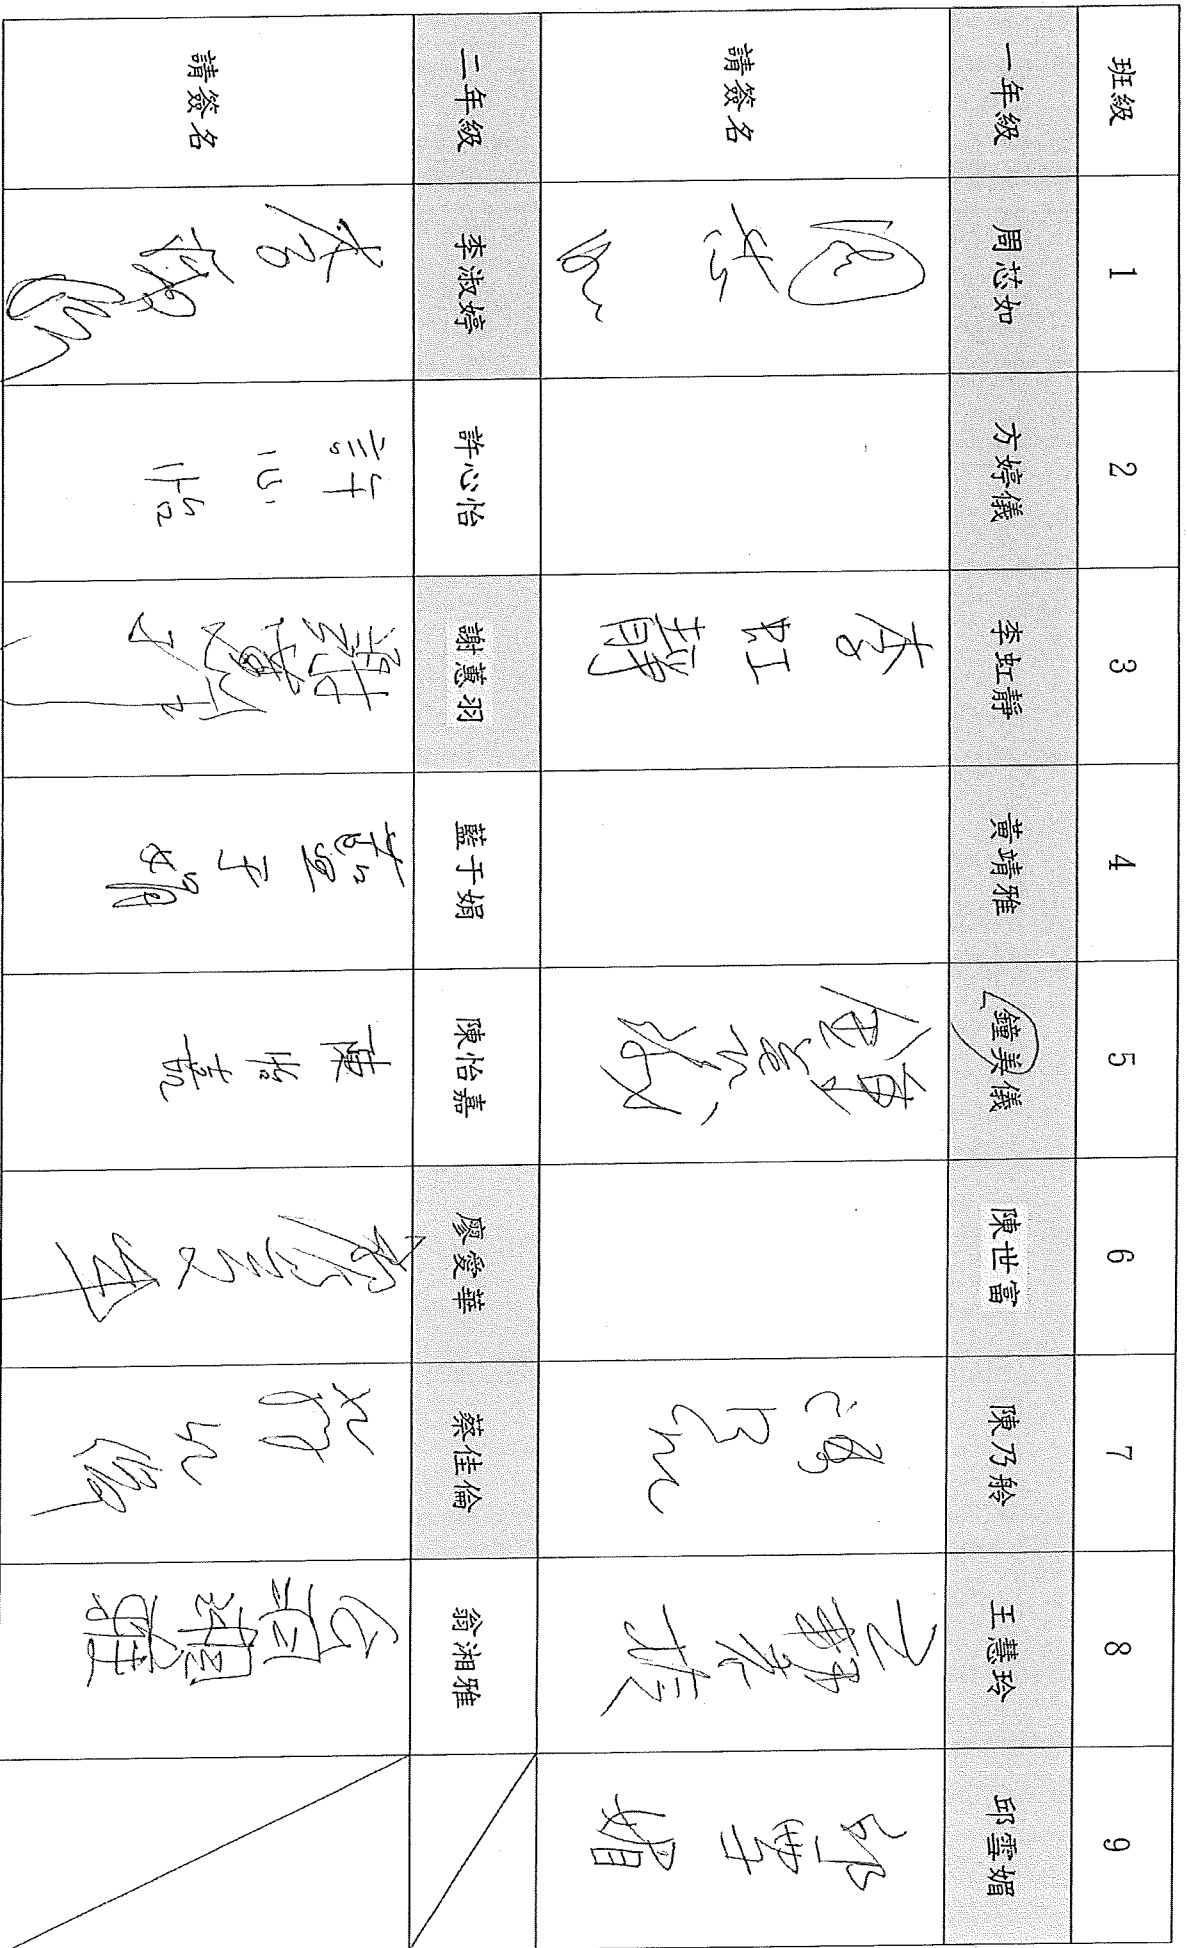 班級 1 2 3 4 5 6 7 8 9
一年級 周芯如 方婷儀 李虹靜 黃靖雅 鐘美儀 陳世富 陳乃舲 王慧玲 邱雪媚
請簽名 周芯如 李虹靜 邱雪媚
二年級 李淑婷 許心怡 謝蕙羽 藍于娟 陳怡嘉 廖愛華 蔡佳倫 翁湘雅
請簽名 李淑婷 許心怡 藍于娟 陳怡嘉 翁湘雅